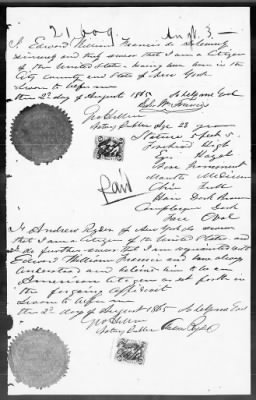 21,009 Augt. 3
I Edward William Francis do solemnly
swear that I am a Citizen
of the United States having been born in the
City county and State of New York
Sworn to before me
this 2d day of August 1865
Edw Wm Francis
Notary Public Age 23 years
Stature 5 feet 5
Forehead High
Eyes Hazel
Nose Prominent
Mouth Medium
Chin
Hair Dark Brown
Complexion Dark
Face Oval
Paid
I Andrew Ryder of New York do swear
that I am a Citizen of the United States and
do further swear that I am acquainted with
Edward William Francis and have always
understood and believed him to be an
American Citizen as set forth in
the foregoing affidavit
Sworn to before me
this 2d day of August 1865
Notary Public